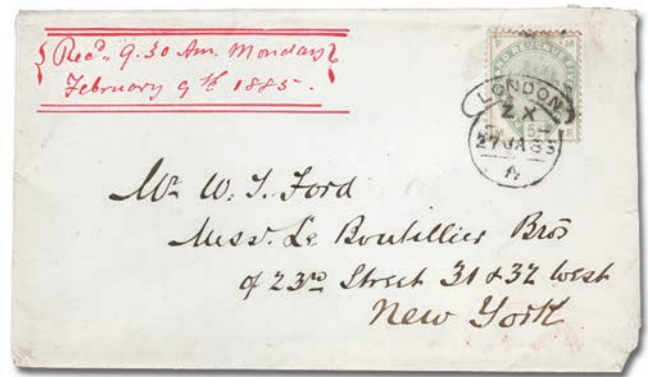 Rec'd. 9.30 Am. Monday
February 9th 1885.
LONDON
ZX
27 JA 85
A
Mr W. T. Ford
Messrs. Le Boutillier Bros
of 23rd Street 31 & 32 West
New York